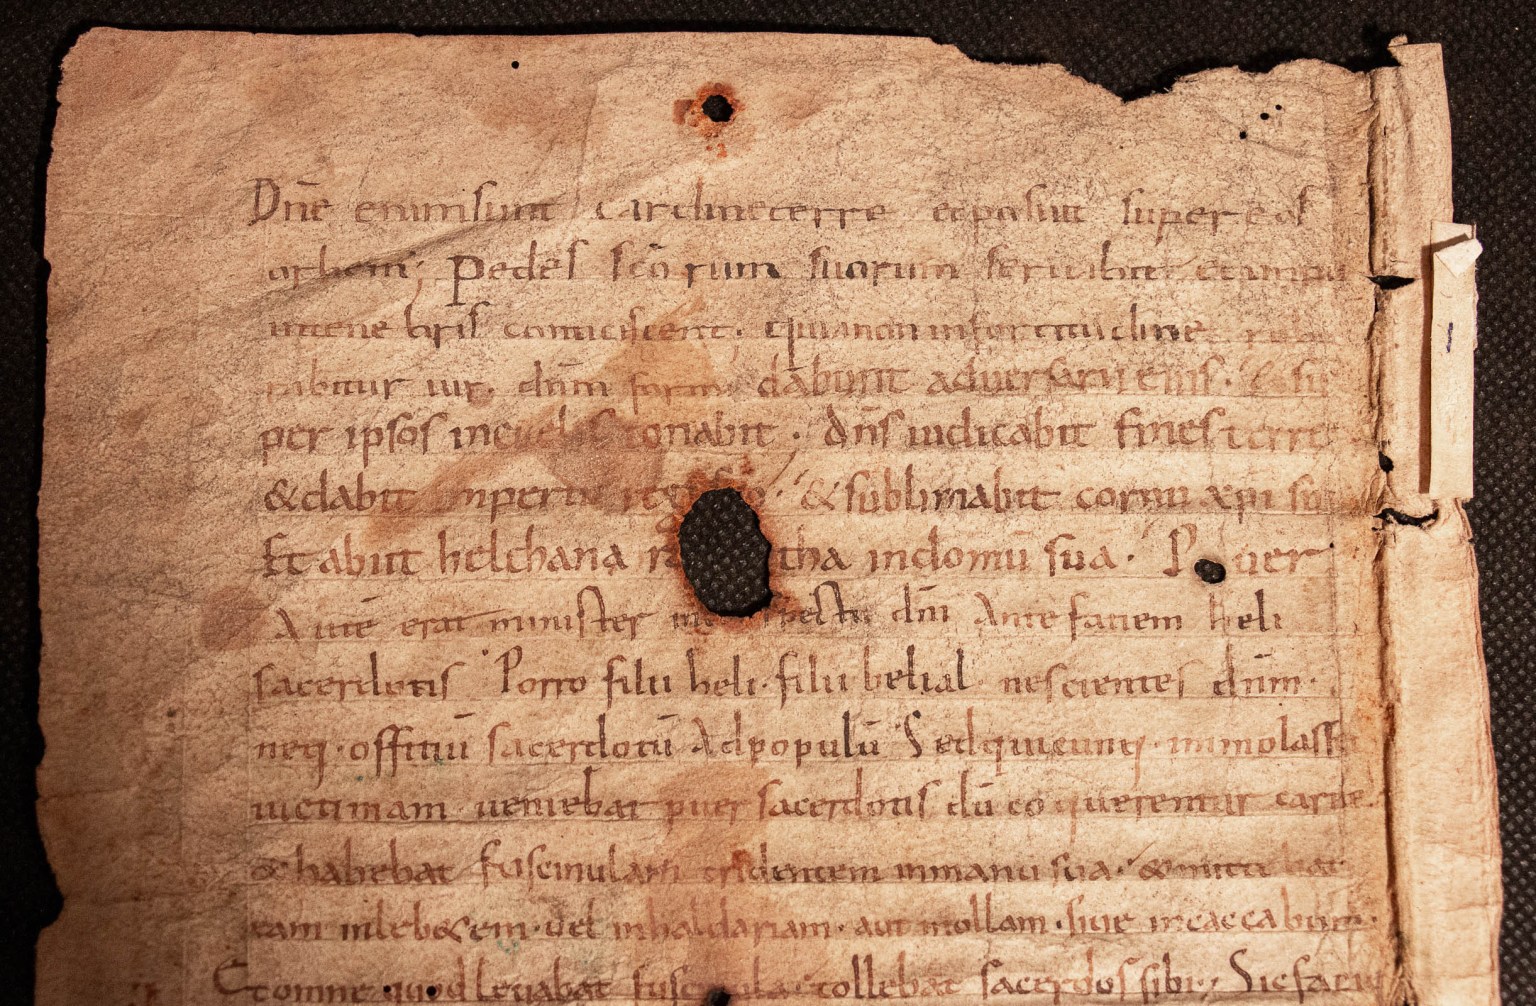 Dn̄e enim sunt cardine terre et posuit super eos
orbem; Pedes sc̄orum suorum seruabit et impii
intenebris conticiscent. quia non infortitudine
rabitur uir. dn̄m formi dabunt aduersarii eius. & su
per ipsos incelis tonabit. dn̄s iudicabit fines terre
& dabit imperiu regi suo. & sublimabit cornu xp̄i sui
Et abiit helchana ra tha in domū sua. P uer
Autē erat minister in spectu dn̄i Ante faciem heli
sacerdotis Porro filii heli. filii belial. nescientes dn̄m.
neq. offitiū sacerdotū Ad populū Sed quicunq. immolasse
uictimam ueniebat puer sacerdotis dū coquerentur carne
& habebat fuscinulam tridentem in manu sua. & mitte bat
eam inleb&em. uel inhaldariam. aut inollam. siue incaccabum.
Et omne quod leuabat fuscinula tollebat sacerdos sibi; Sic facie
|